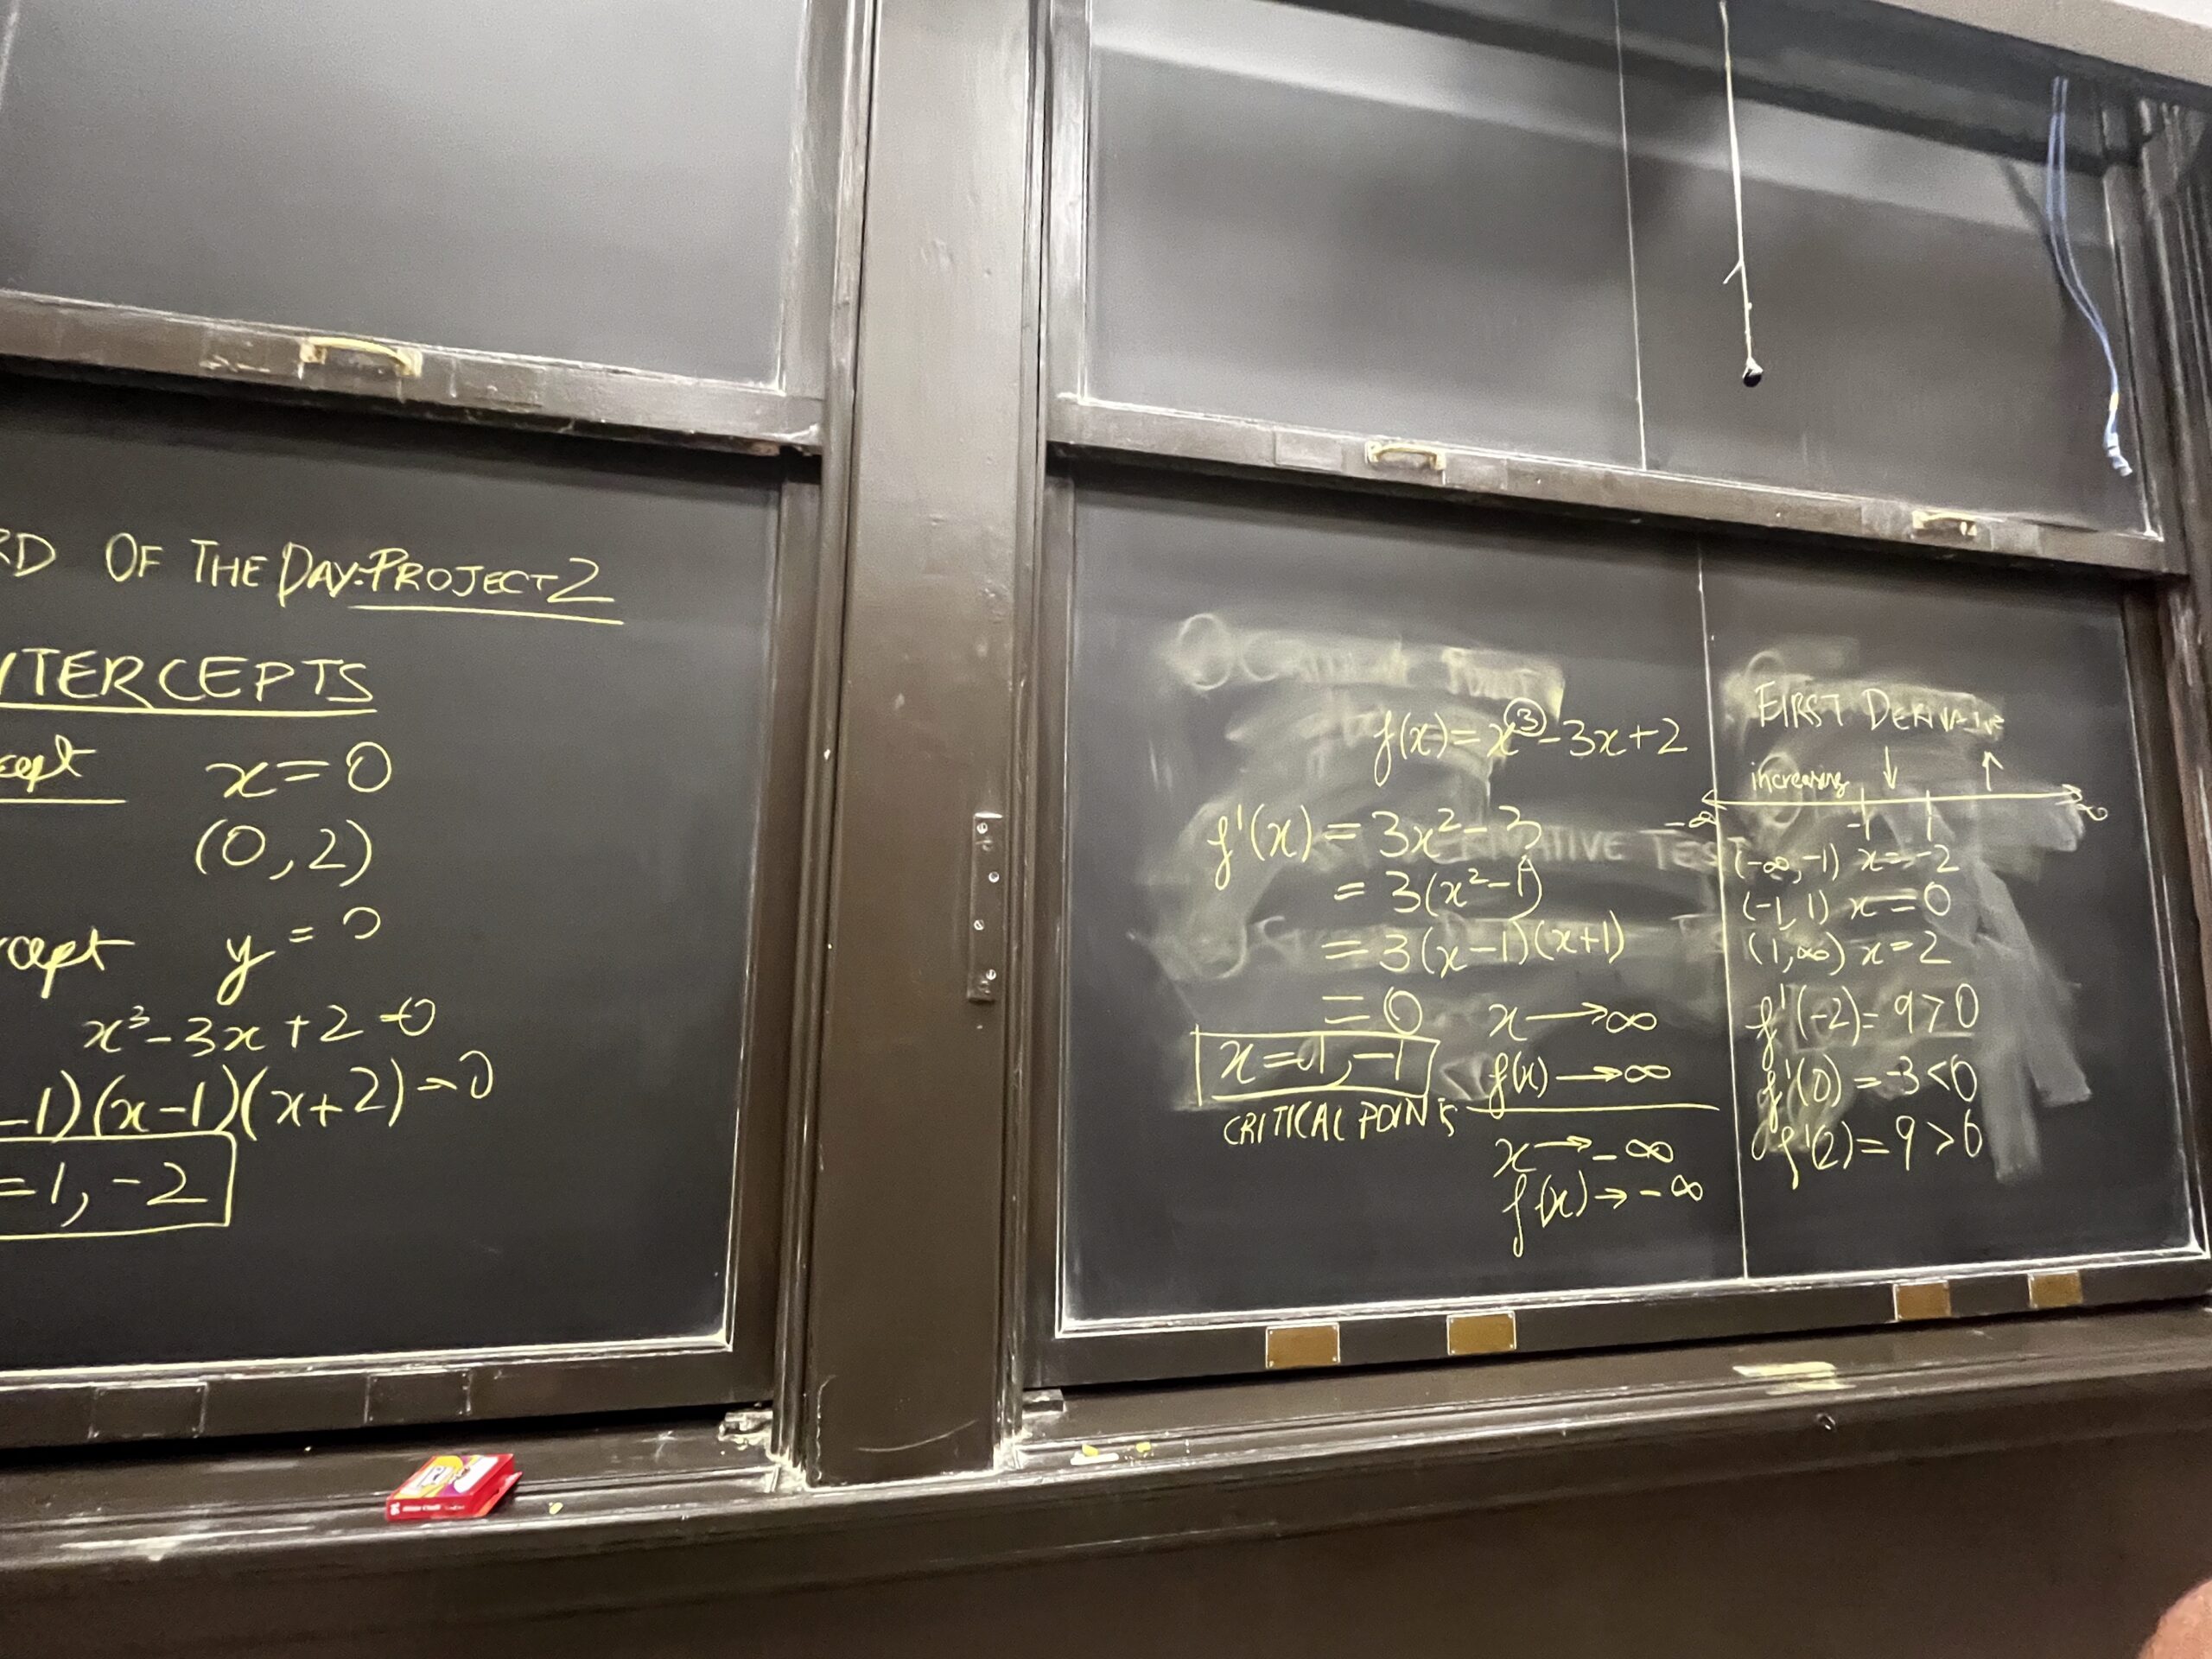 OF THE DAY: PROJECT 2
INTERCEPTS
x=0
(0,2)
y = 0
x³-3x+2=0
-1)(x-1)(x+2)=0
=1, -2
f(x)=x³-3x+2
f'(x) = 3x²-3
= 3(x²-1)
= 3(x-1)(x+1)
= 0
x=1,-1
CRITICAL POINTS
x→∞
f(x)→∞
x→-∞
f(x)→-∞
FIRST DERIVATIVE
increasing ↓ ↑
-∞ -1 1 ∞
(-∞,-1) x=-2
(-1,1) x=0
(1,∞) x=2
f'(-2)=9>0
f'(0)=-3<0
f'(2)=9>0